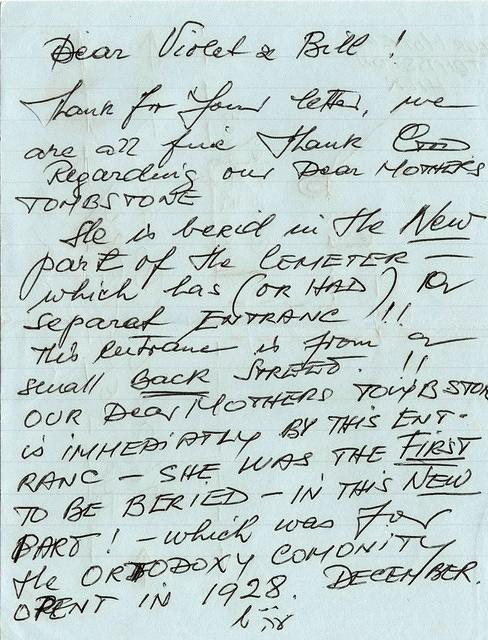 Dear Violet & Bill !
Thank for your letter, we
are all fine thank God
Regarding our Dear MOTHERS
TOMBSTONE
She is beried in the New
part of the CEMETER —
which has (OR HAD) a
separat ENTRANC !!
this entranc is from a
small BACK STREET. !!
OUR Dear MOTHERS TOMBSTON
is IMMEDIATLY BY THIS ENT-
RANC — SHE WAS THE FIRST
TO BE BERIED — IN THIS NEW
PART! — which was for
the ORTODOXY COMONITY
OPENT IN 1928. DECEMBER.